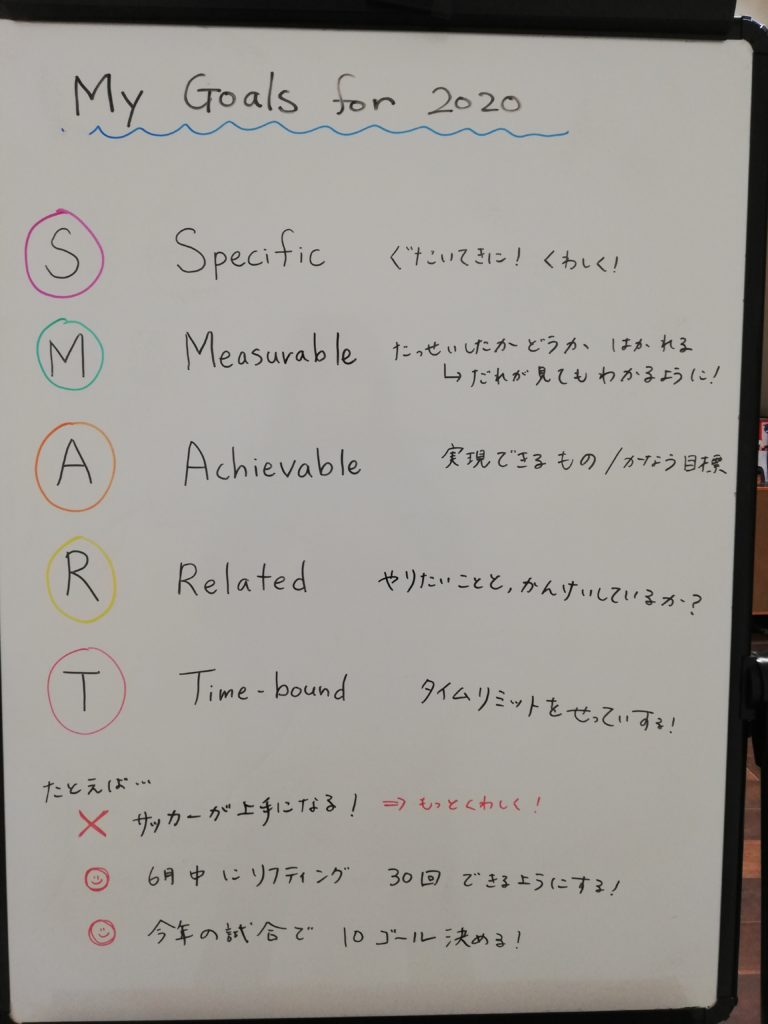 My Goals for 2020
S Specific ぐたいてきに! くわしく!
M Measurable たっせいしたかどうか はかれる
↳ だれが見てもわかるように!
A Achievable 実現できるもの/かなう目標
R Related やりたいことと,かんけいしているか?
T Time-bound タイムリミットをせっていする!
たとえば…
× サッカーが上手になる! ⇒ もっとくわしく!
6月中にリフティング 30回 できるようにする!
今年の試合で 10ゴール決める!